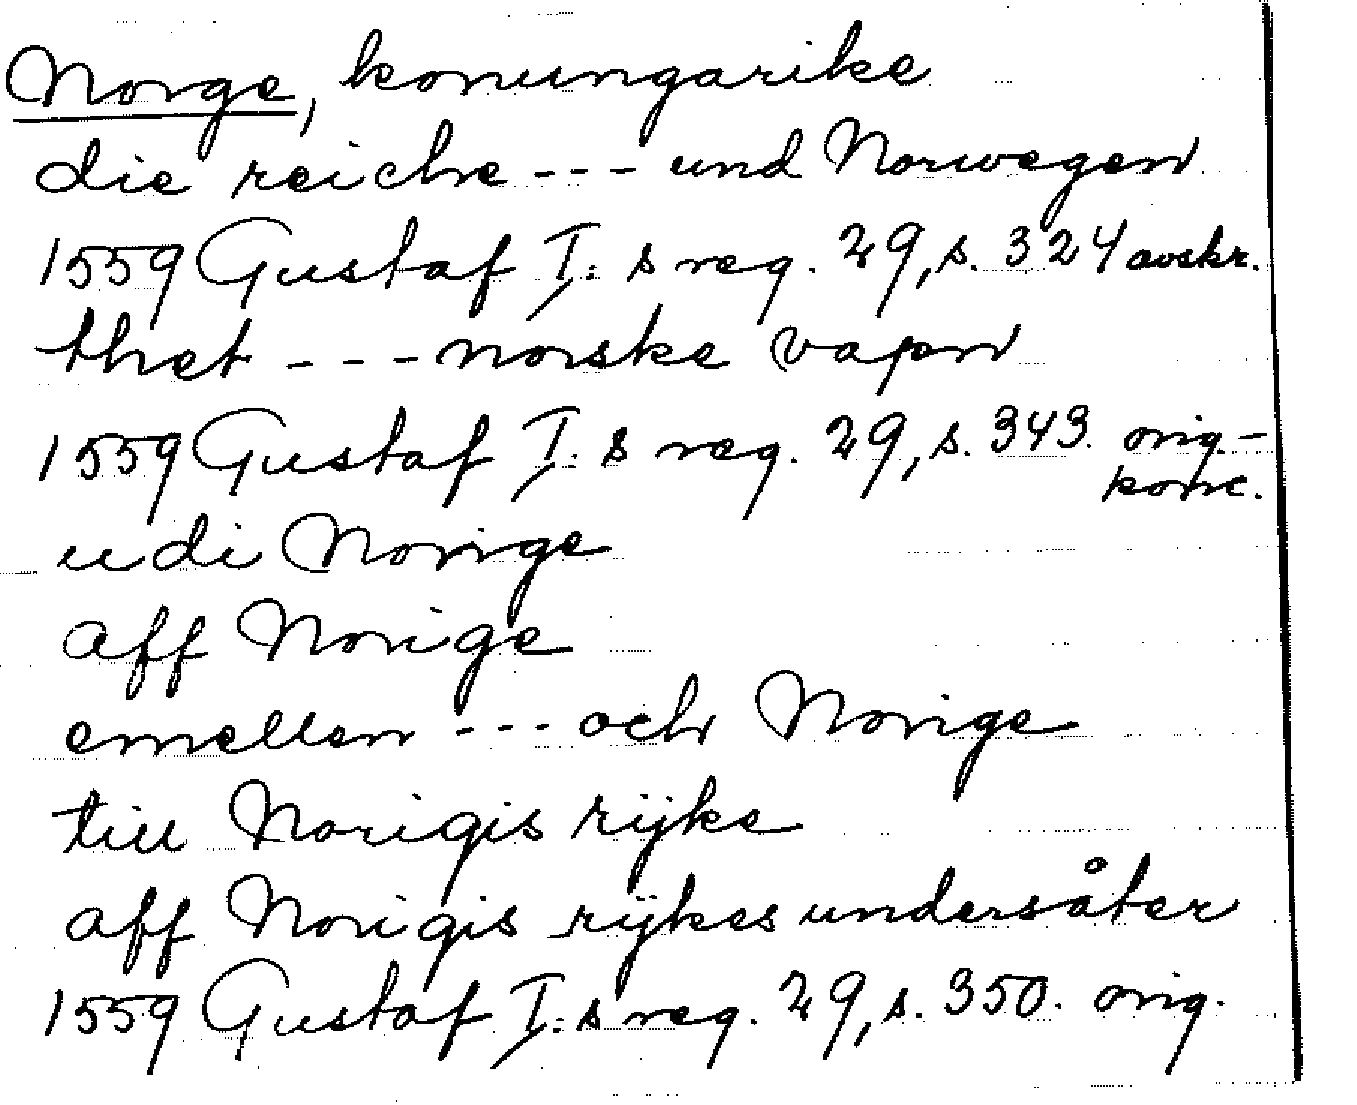 Norge, konungarike
die reiche --- und Norwegen
1559 Gustaf I:s reg. 29, s. 324 avskr.
thet --- norske vapen
1559 Gustaf I:s reg. 29, s. 343. orig-
konc.
udi Norige
aff Norige
emellen --- och Norige
till Norigis rijke
aff Norigis rijkes undersåter
1559 Gustaf I:s reg. 29, s. 350. orig.